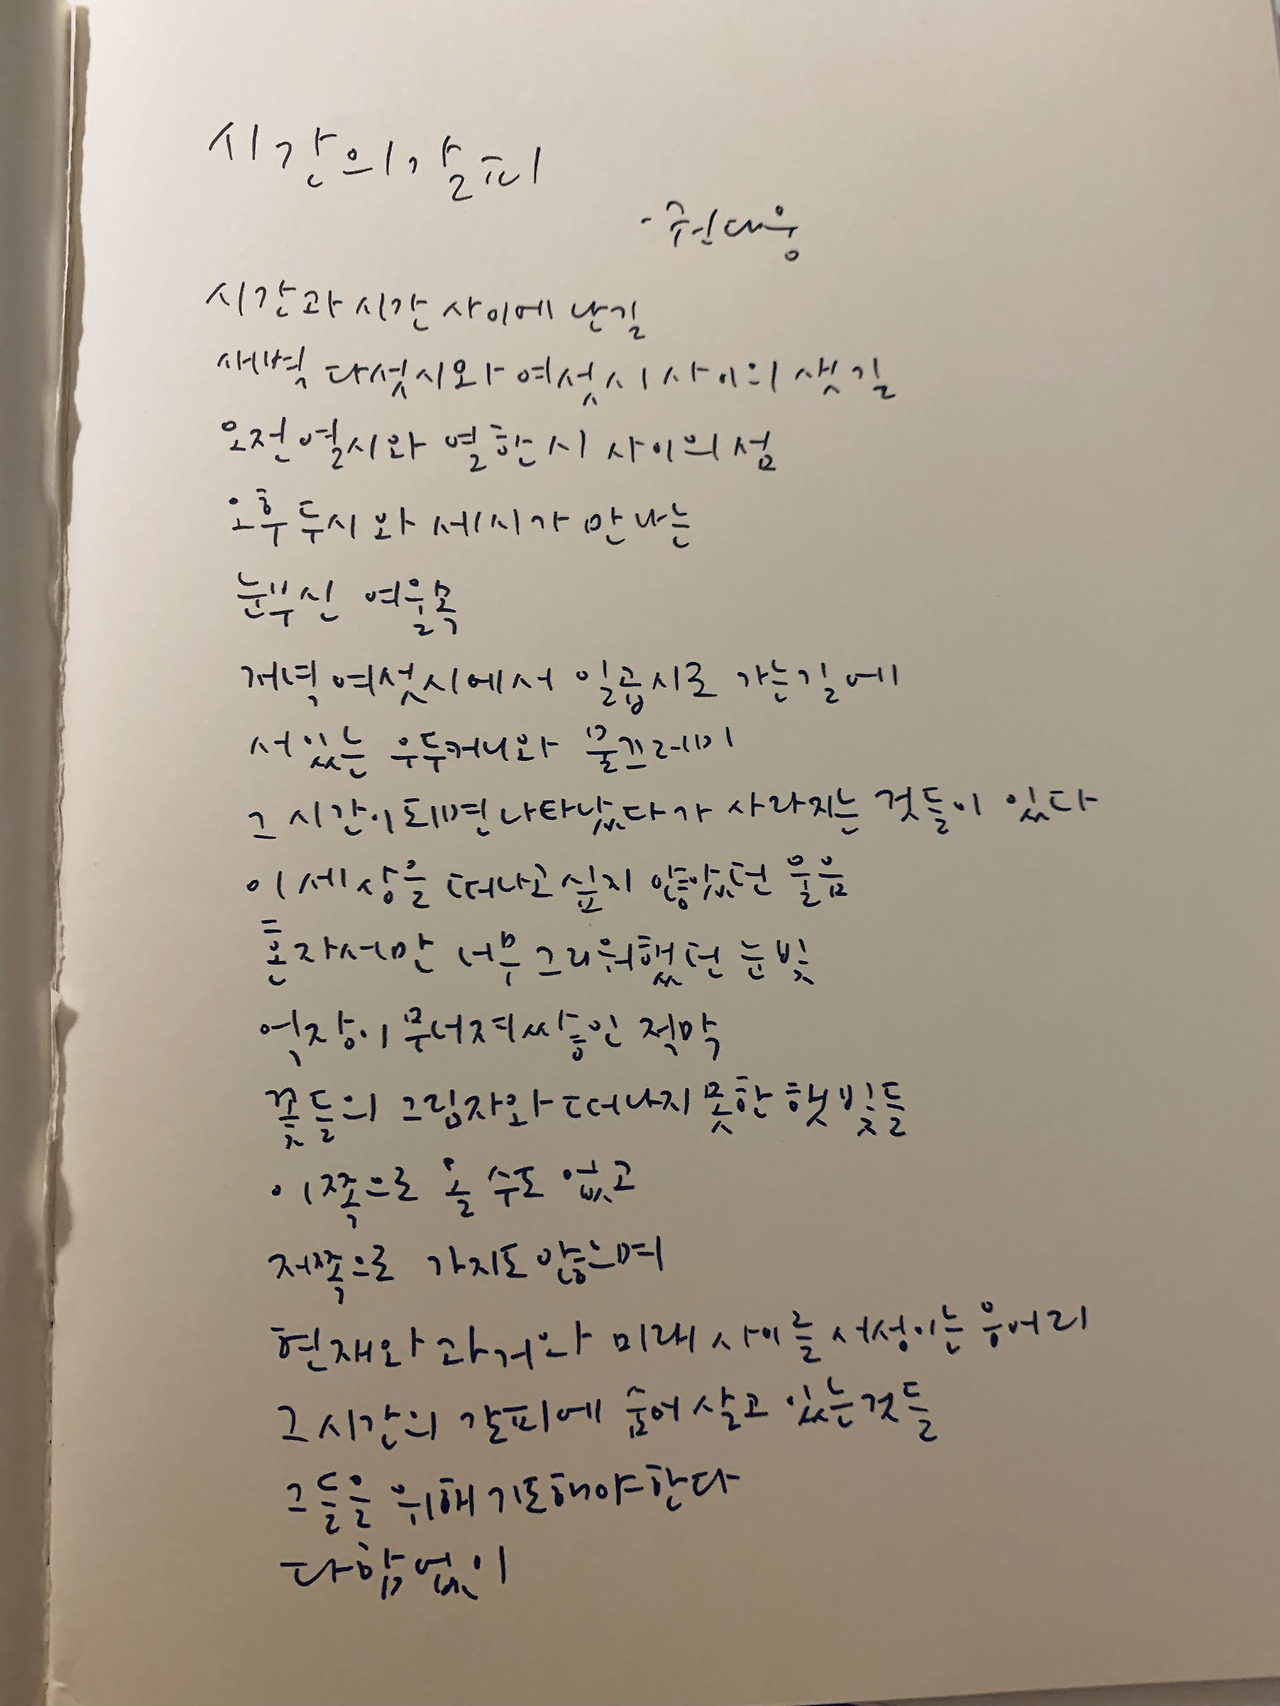 시간의 갈피
- 권대웅
시간과 시간 사이에 난 길
새벽 다섯시와 여섯시 사이의 샛길
오전 열시와 열한시 사이의 섬
오후 두시와 세시가 만나는
눈부신 여울목
저녁 여섯시에서 일곱시로 가는 길에
서있는 우두커니와 물끄러미
그 시간이 되면 나타났다가 사라지는 것들이 있다
이 세상을 떠나고 싶지 않았던 울음
혼자서만 너무 그리워했던 눈빛
억장이 무너져 쌓인 적막
꽃들의 그림자와 떠나지 못한 햇빛들
이쪽으로 올 수도 없고
저쪽으로 가지도 않느며
현재와 과거와 미래 사이를 서성이는 웅어리
그 시간의 갈피에 숨어 살고 있는 것들
그들을 위해 기도해야 한다
다함없이